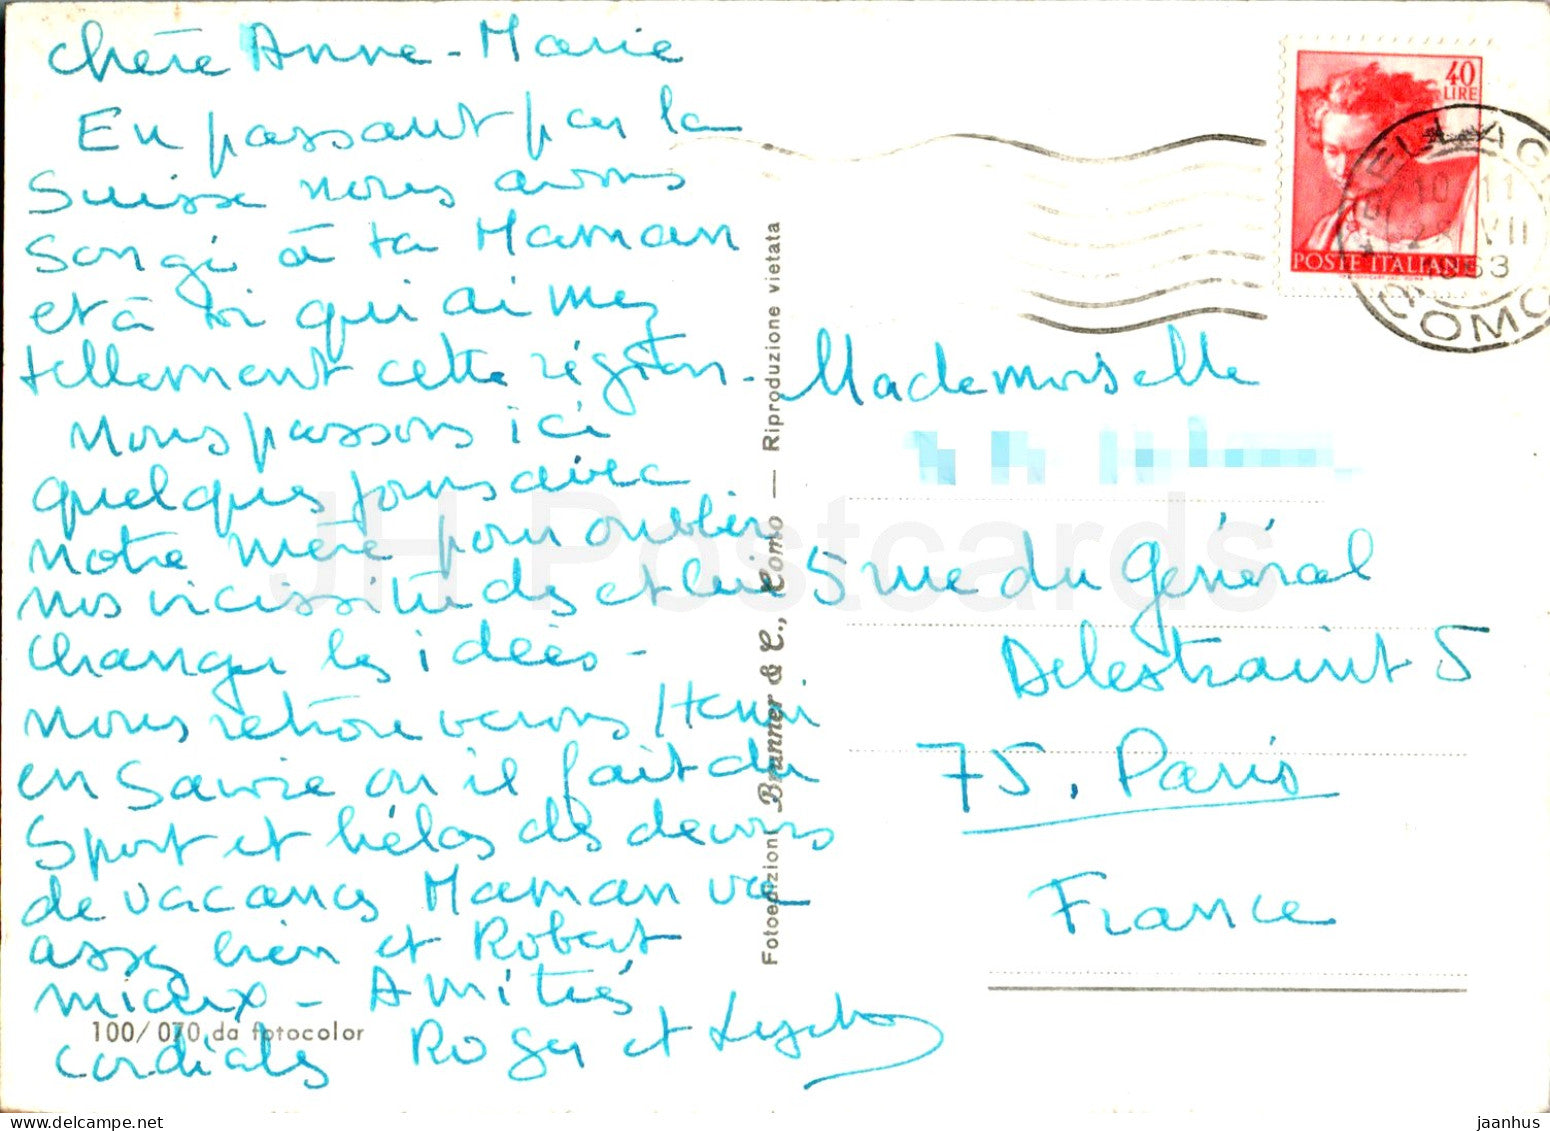 Chère Anne-Marie
En passant par la
Suisse nous avons
songé à ta Maman
et à toi qui aimez
tellement cette région -
Nous passons ici
quelques jours avec
notre mère pour oublier
nos vicissitudes et lui
changer les idées -
nous retrouverons Henri
en Savoie où il fait du
sport et hélas des devoirs
de vacances Maman va
assez bien et Robert
mieux - Amitiés
cordiales Roger et
100/070 da fotocolor
Fotoedizioni Brunner & C., Como — Riproduzione vietata
40
LIRE
POSTE ITALIANE
BELLAGIO
10 11
VII
1963
COMO
Mademoiselle
5 rue du Général
Delestraint 5
75. Paris
France
JH Postcards
jaanhus